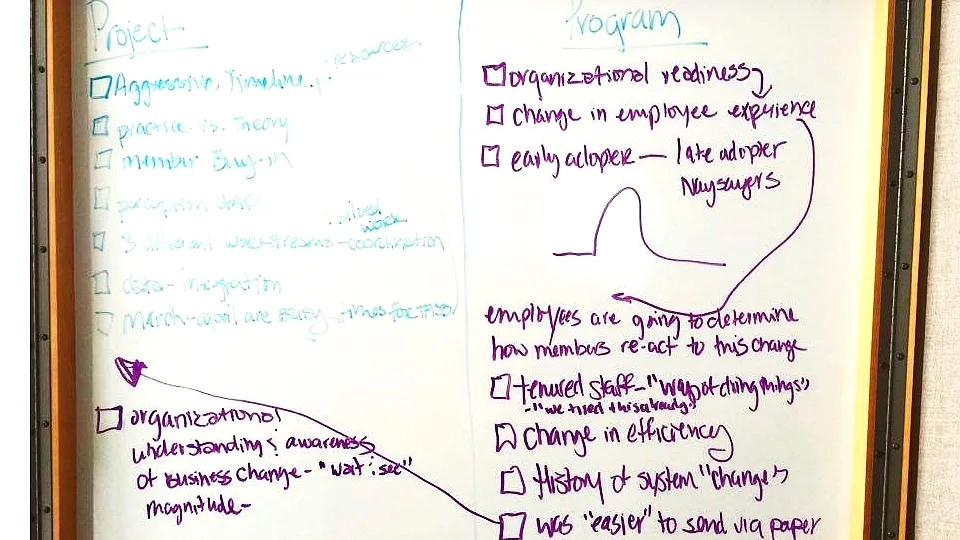 Project
Aggressive Timeline, resources
practice vs. Theory
member Buy-in
perception GAP
siloed work
3 different workstreams - coordination
data - integration
March-april are Busy times for
organizational
understanding & awareness
of Business Change - "wait & see"
magnitude -
Program
organizational readiness
change in employee experience
early adopter — late adopter
Naysayers
employees are going to determine
how members re-act to this change
tenured staff - "way of doing things"
- "we tried this already"
Change in efficiency
History of system "change"
was "easier" to send via paper